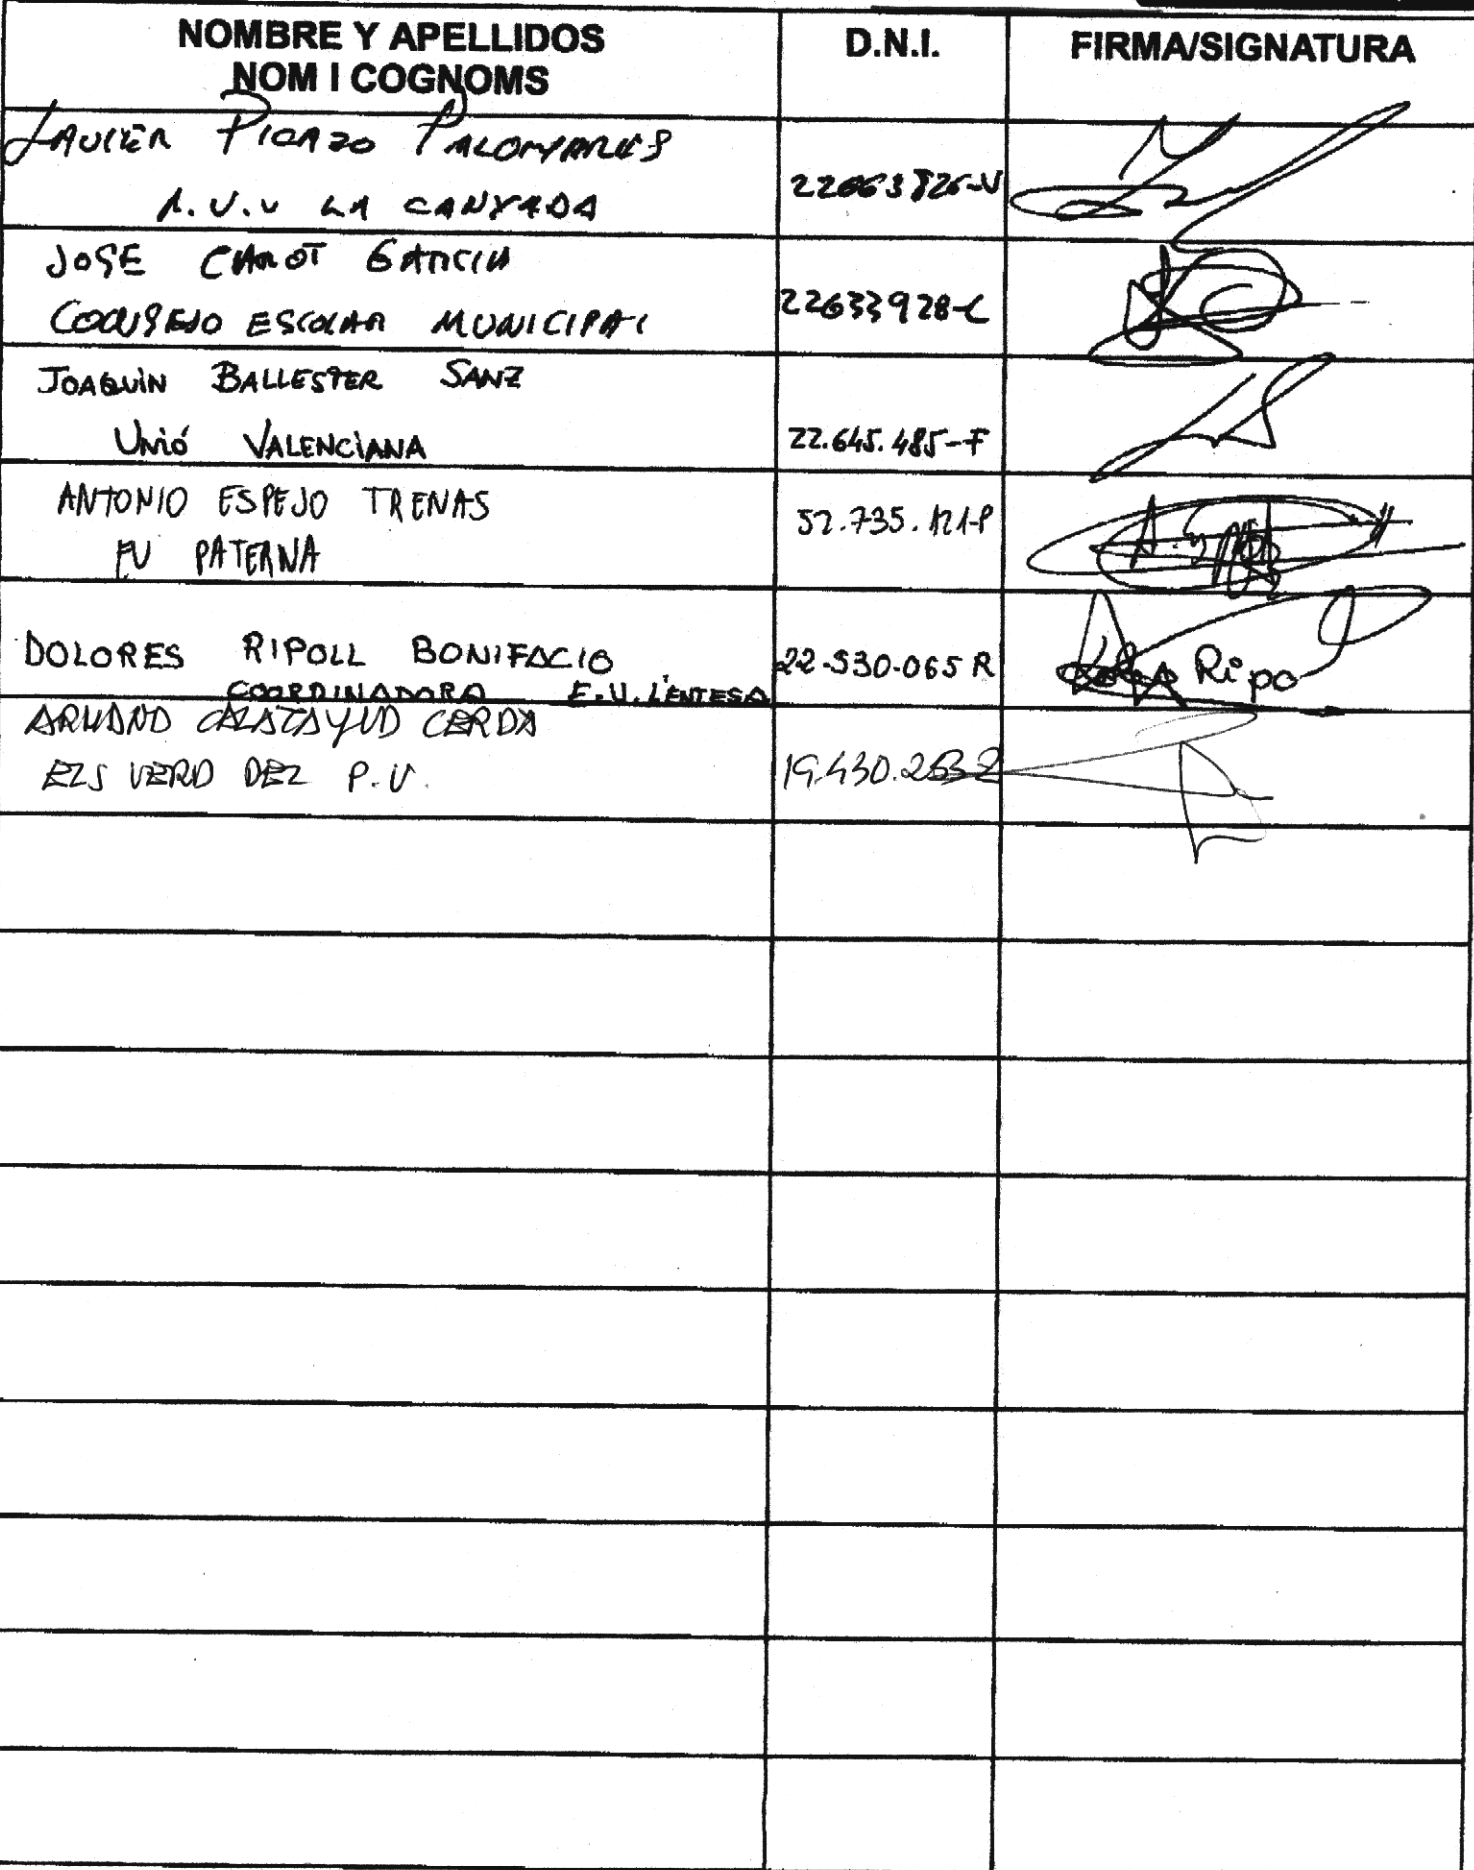 NOMBRE Y APELLIDOS
NOM I COGNOMS
D.N.I.
FIRMA/SIGNATURA
JAVIER PICAZO PALOMARES
A.V.V LA CANYADA
JOSE GARCIA
CONSEJO ESCOLAR MUNICIPAL
22633928-C
JOAQUIN BALLESTER SANZ
UNIÓ VALENCIANA
22.645.485-F
ANTONIO ESPEJO TRENAS
EU PATERNA
52.735.121-P
DOLORES RIPOLL BONIFACIO
COORDINADORA E.U. L'ENTESA
22-530-065 R
Ripo
ARMAND CALATAYUD CERDA
ELS VERD DEL P.V.